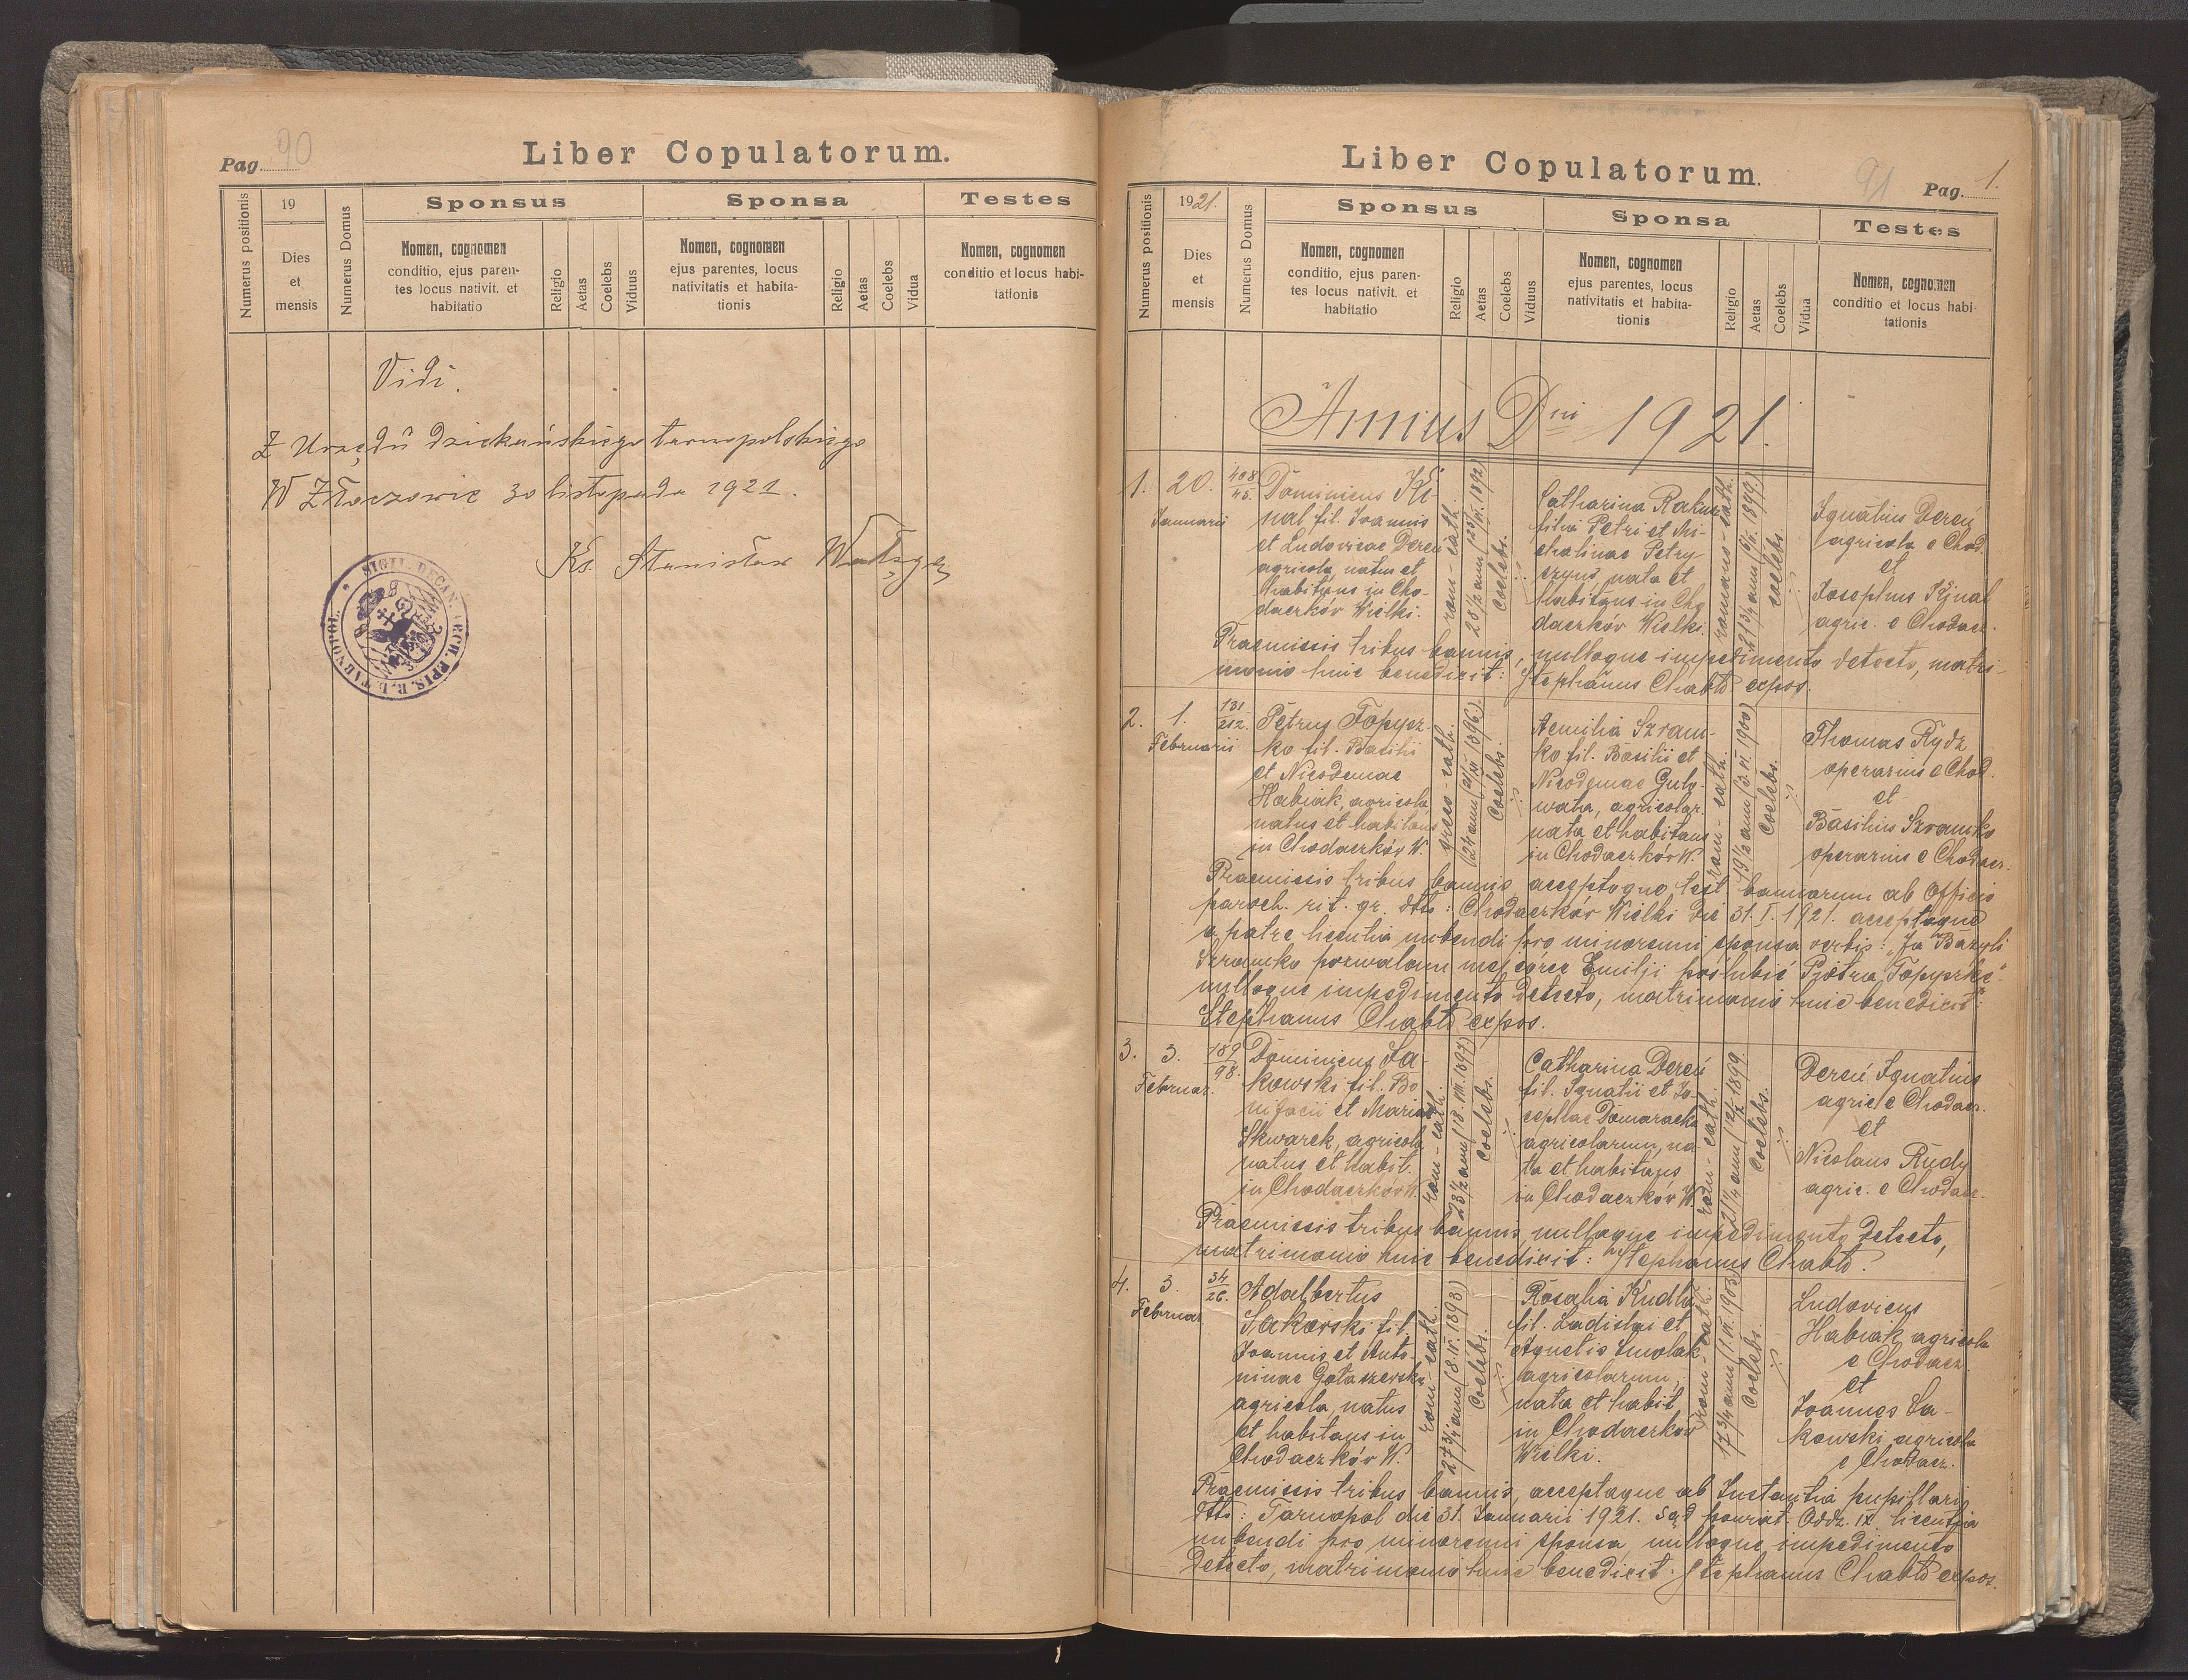 Pag. 90
Liber Copulatorum.
Numerus positionis
19
Dies
et
mensis
Numerus Domus
Sponsus
Nomen, cognomen
conditio, ejus paren-
tes locus nativit. et
habitatio
Religio
Aetas
Coelebs
Viduus
Sponsa
Nomen, cognomen
ejus parentes, locus
nativitatis et habita-
tionis
Religio
Aetas
Coelebs
Vidua
Testes
Nomen, cognomen
conditio et locus habi-
tationis
Vidi.
Z Urzędu dziekańskiego tarnopolskiego
W 30 listopada 1921.
Ks. Stanisław
SIGIL. DECAN. TARNOPOL.
Liber Copulatorum.
91
Pag. 1.
Numerus positionis
1921.
Dies
et
mensis
Numerus Domus
Sponsus
Nomen, cognomen
conditio, ejus paren-
tes locus nativit. et
habitatio
Religio
Aetas
Coelebs
Viduus
Sponsa
Nomen, cognomen
ejus parentes, locus
nativitatis et habita-
tionis
Religio
Aetas
Coelebs
Vidua
Testes
Nomen, cognomen
conditio et locus habi-
tationis
Annus Dni 1921.
1.
20.
Januarii
408/45.
Dominicus Ki-
nal fil. Joannis
et Ludovicae Dereń
agricola, natus et
habitans in Cho-
daczków Wielki.
rom-cath.
Coelebs.
Catharina Rakus
filia Petri et Mi-
chalinae Petry-
szyn, nata et
habitans in Cho
daczków Wielki.
romano-cath.
coelebs.
Ignatius Dereń
agricola e Chod.
et
Josephus Kinal
agric. e Chodacz.
Praemissis tribus bannis, nulloque impedimento detecto, matri-
monio huic benedixit: Stephanus Chabło expos.
2.
1.
Februarii
131/212.
Petrus Topycz-
ko fil. Basilii
et Nicodemae
Habiak, agricola
natus et habitans
in Chodaczków W.
greco-cath.
Coelebs.
Aemilia Szram-
ko fil. Basilii et
Nicodemae Guto-
wata, agricolar.
nata et habitans
in Chodaczków W.
rom-cath.
Coelebs.
Thomas Rydz
operarius e Chod.
et
Basilius Szramko
operarius e Chodacz.
Praemissis tribus bannis, acceptoque test. bannorum ab Officio
paroch. rit. gr. dtto: Chodaczków Wielki die 31. I. 1921. acceptaque
a patre licentia nubendi pro minorenni sponsa verbis: "Ja Bazyli
Szramko pozwalam mej córce Emilji poślubić Piotra Topyczkę"
nulloque impedimento detecto, matrimonio huic benedixit:
Stephanus Chabło expos.
3.
3.
Februar.
189/98.
Dominicus Ła-
kowski fil. Bo
nifacii et Mariae
Skwarek, agricola
natus et habit.
in Chodaczków W.
rom-cath.
23 1/2 ann (18. VIII. 1897)
Coelebs.
Catharina Dereń
fil. Ignatii et Jo-
sephae Domaracka
agricolarum, na-
ta et habitans
in Chodaczków W.
rom-cath.
Coelebs.
Dereń Ignatius
agric. e Chodacz.
et
Nicolaus Rudy
agric. e Chodacz.
Praemissis tribus bannis, nulloque impedimento detecto,
matrimonio huic benedixit: Stephanus Chabło.
4.
3.
Februar.
34/26.
Adalbertus
Łakowski fil.
Joannis et Anto-
ninae Gołaszewska
agricola, natus
et habitans in
Chodaczków W.
rom-cath.
Coelebs.
Rosalia Kudła
fil. Ladislai et
Agnetis Smolak
agricolarum,
nata et habit.
in Chodaczków
Wielki.
rom-cath.
Coelebs.
Ludovicus
Habiak agricola
e Chodacz.
et
Joannes Ła-
kowski agricola
e Chodacz.
Praemissis tribus bannis, acceptaque ab Instantia pupillari
dtto: Tarnopol die 31. Januarii 1921. Sąd powiat. Oddz. IX licentia
nubendi pro minorenni sponsa, nulloque impedimento
detecto, matrimonio huic benedixit: Stephanus Chabło expos.